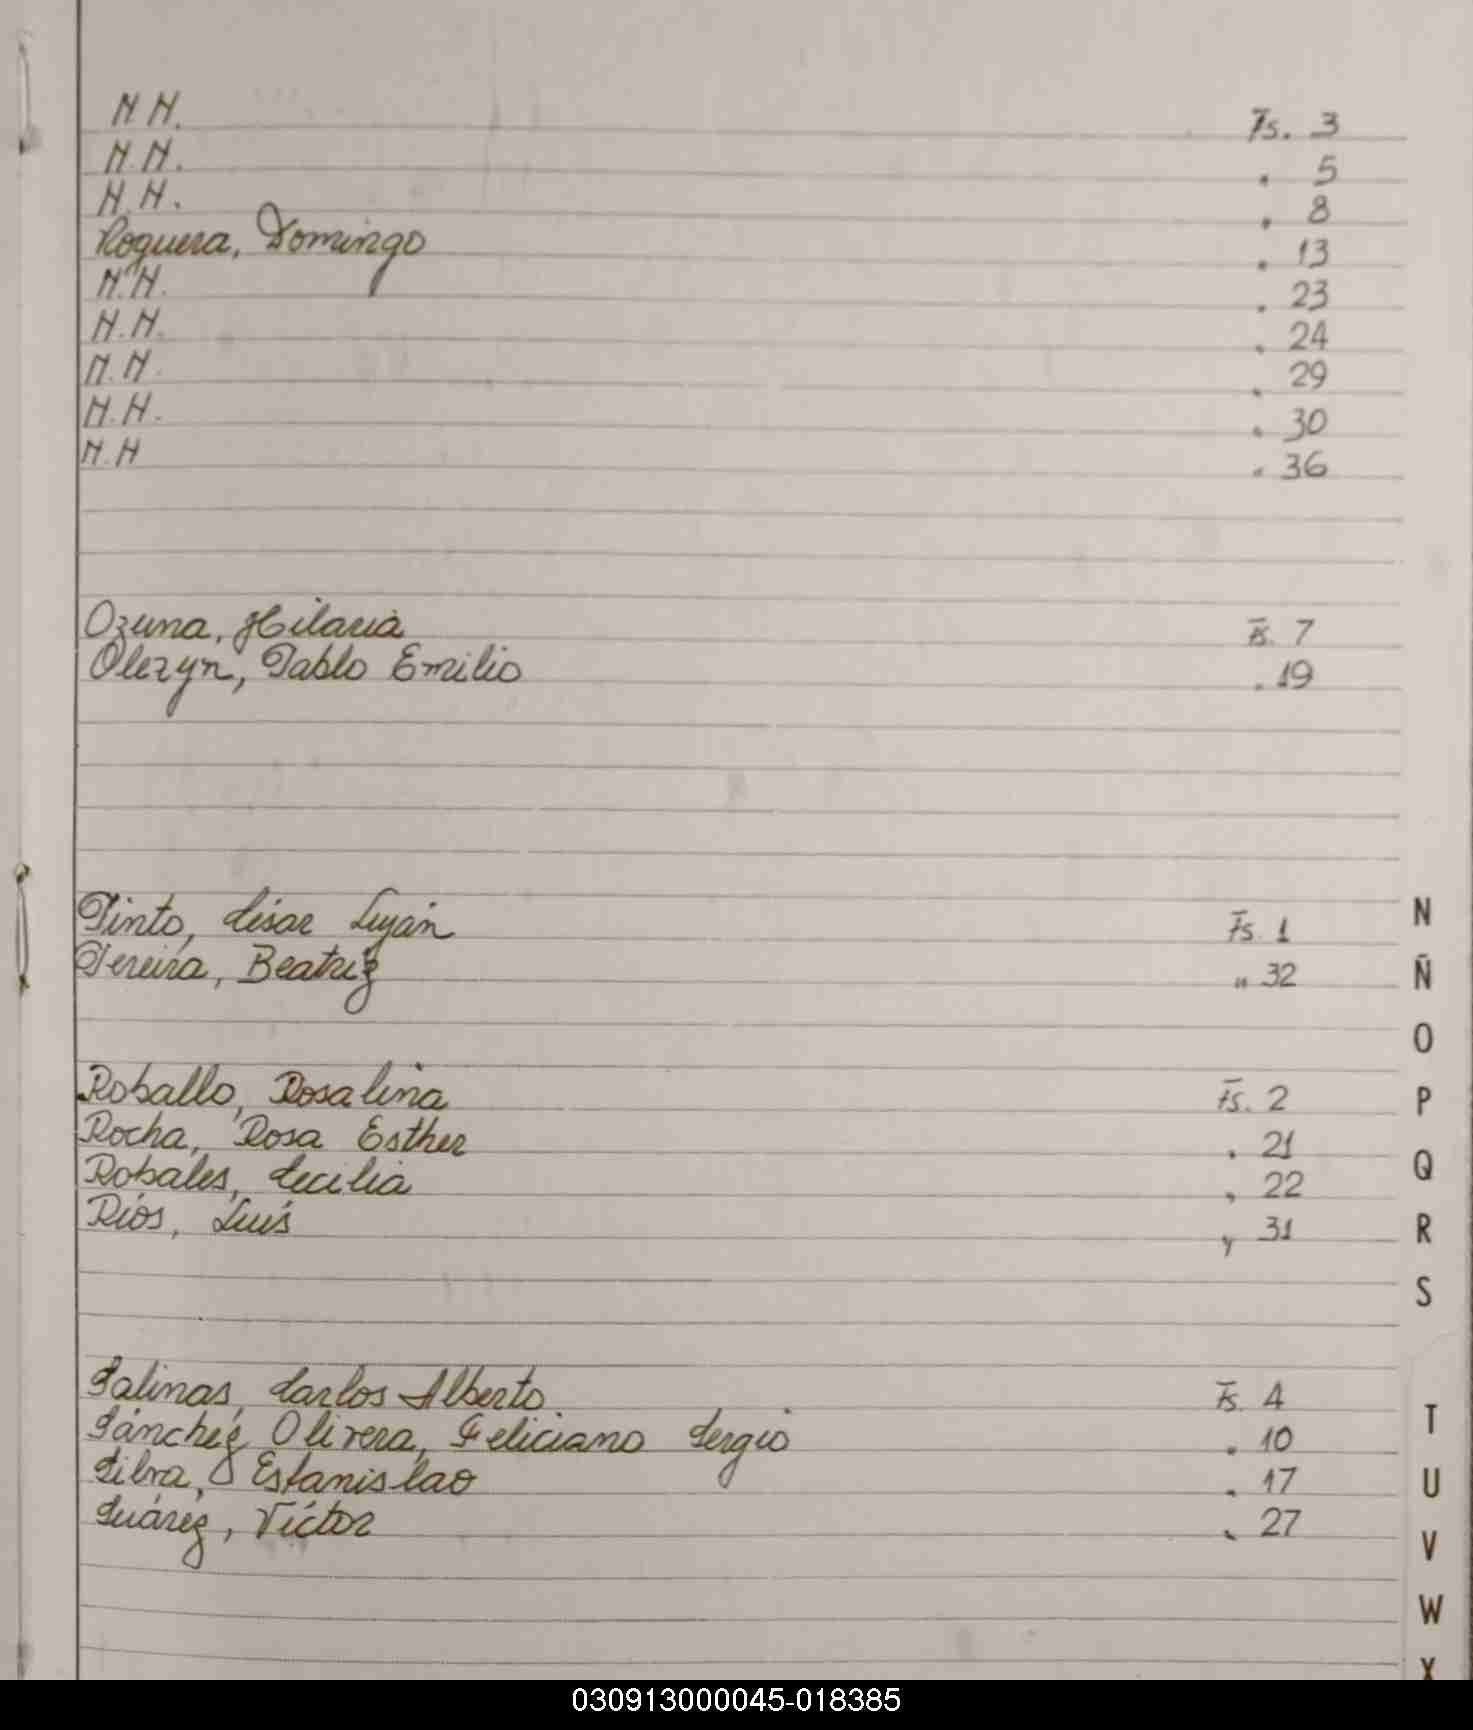 N N. Fs. 3
N.N. " 5
N.N. " 8
Noguera, Domingo " 13
N.N. " 23
N.N. " 24
N.N. " 29
N.N. " 30
N.N " 36
Ozuna, Hilaria Fs. 7
Olezyn, Pablo Emilio " 19
Pinto, César Luján Fs. 1
Pereira, Beatriz " 32
Roballo, Rosalina Fs. 2
Rocha, Rosa Esther " 21
Robales, Cecilia " 22
Ríos, Luis " 31
Salinas, Carlos Alberto Fs. 4
Sánchez Olivera, Feliciano Sergio " 10
Silva, Estanislao " 17
Suárez, Víctor " 27
N
Ñ
O
P
Q
R
S
T
U
V
W
X
030913000045-018385